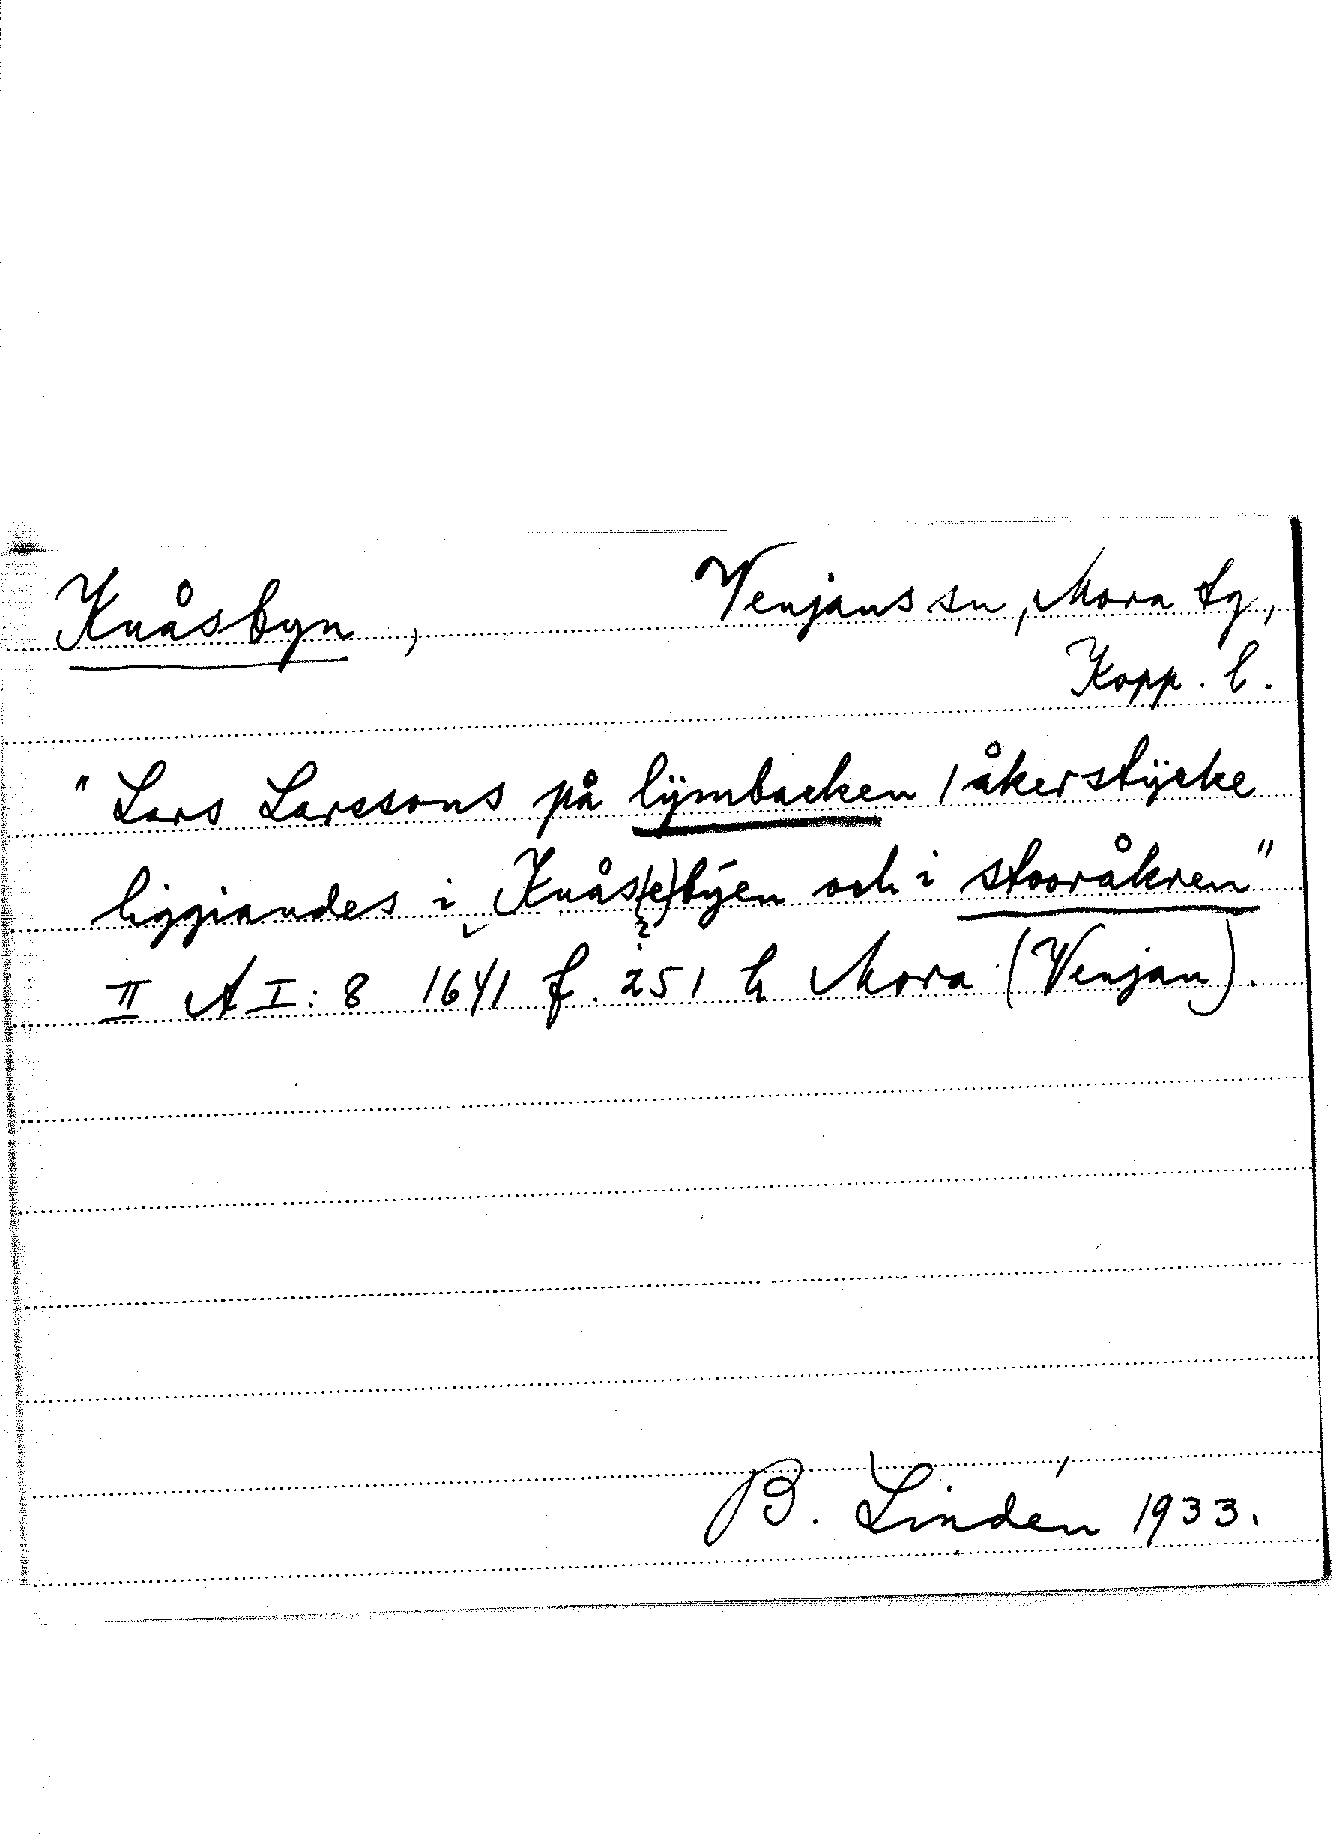 Knåsbyn, Venjans sn, Mora tg,
Kopp. l.
"Lars Larssons på lÿmbacken / åkerstÿcke
liggiandes i Knås(e)bÿen och i stooråkren"
II A I: 8 1641 f. 251 h Mora (Venjan).
B. Lindén 1933.